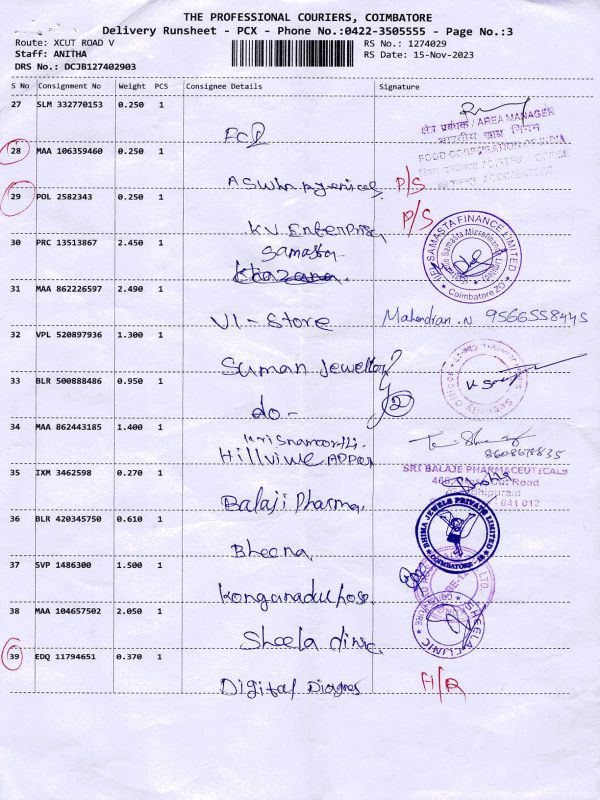 THE PROFESSIONAL COURIERS, COIMBATORE
Delivery Runsheet - PCX - Phone No.:0422-3505555 - Page No.:3
Route: XCUT ROAD V RS No.: 1274029
Staff: ANITHA RS Date: 15-Nov-2023
DRS No.: DCJB127402903
S No Consignment No Weight PCS Consignee Details Signature
27 SLM 332770153 0.250 1
FCI
क्षेत्र प्रबंधक / AREA MANAGER
भारतीय खाद्य निगम
FOOD CORPORATION OF INDIA
28 MAA 106359460 0.250 1
P/S
29 POL 2582343 0.250 1
KV Enterprise P/S
30 PRC 13513867 2.450 1
Samasta
Khazana
SAMASTA FINANCE LIMITED
Coimbatore
31 MAA 862226597 2.490 1
VI - Store Mahendian. N 9566558445
32 VPL 520897936 1.300 1
Suman Jewellery
33 BLR 500888486 0.950 1
do - 2
34 MAA 862443185 1.400 1
8608679835
SRI BALAJE PHARMACEUTICALS
Road
641 012
35 IXM 3462598 0.270 1
Balaji Pharma
36 BLR 420345750 0.610 1
Bheema
BHIMA JEWELS PRIVATE LIMITED
COIMBATORE
37 SVP 1486300 1.500 1
LTD.
38 MAA 104657502 2.050 1
Sheela clinic
SHEELA CLINIC
39 EDQ 11794651 0.370 1
Digital